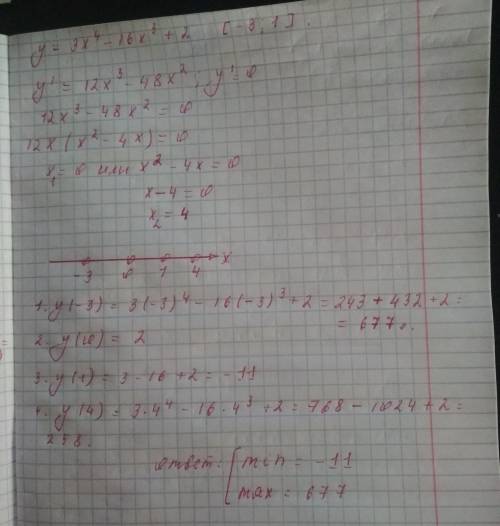 y = 3x⁴ - 16x³ + 2 [-3, 1].
y' = 12x³ - 48x², y' = 0
12x³ - 48x² = 0
12x (x² - 4x) = 0
x₁ = 0 или x² - 4x = 0
x - 4 = 0
x₂ = 4
-3 0 1 4 x
1. y(-3) = 3(-3)⁴ - 16(-3)³ + 2 = 243 + 432 + 2 =
= 677.
2. y(0) = 2
3. y(1) = 3 - 16 + 2 = -11
4. y(4) = 3·4⁴ - 16·4³ + 2 = 768 - 1024 + 2 =
258.
ответ: min = -11
max = 677